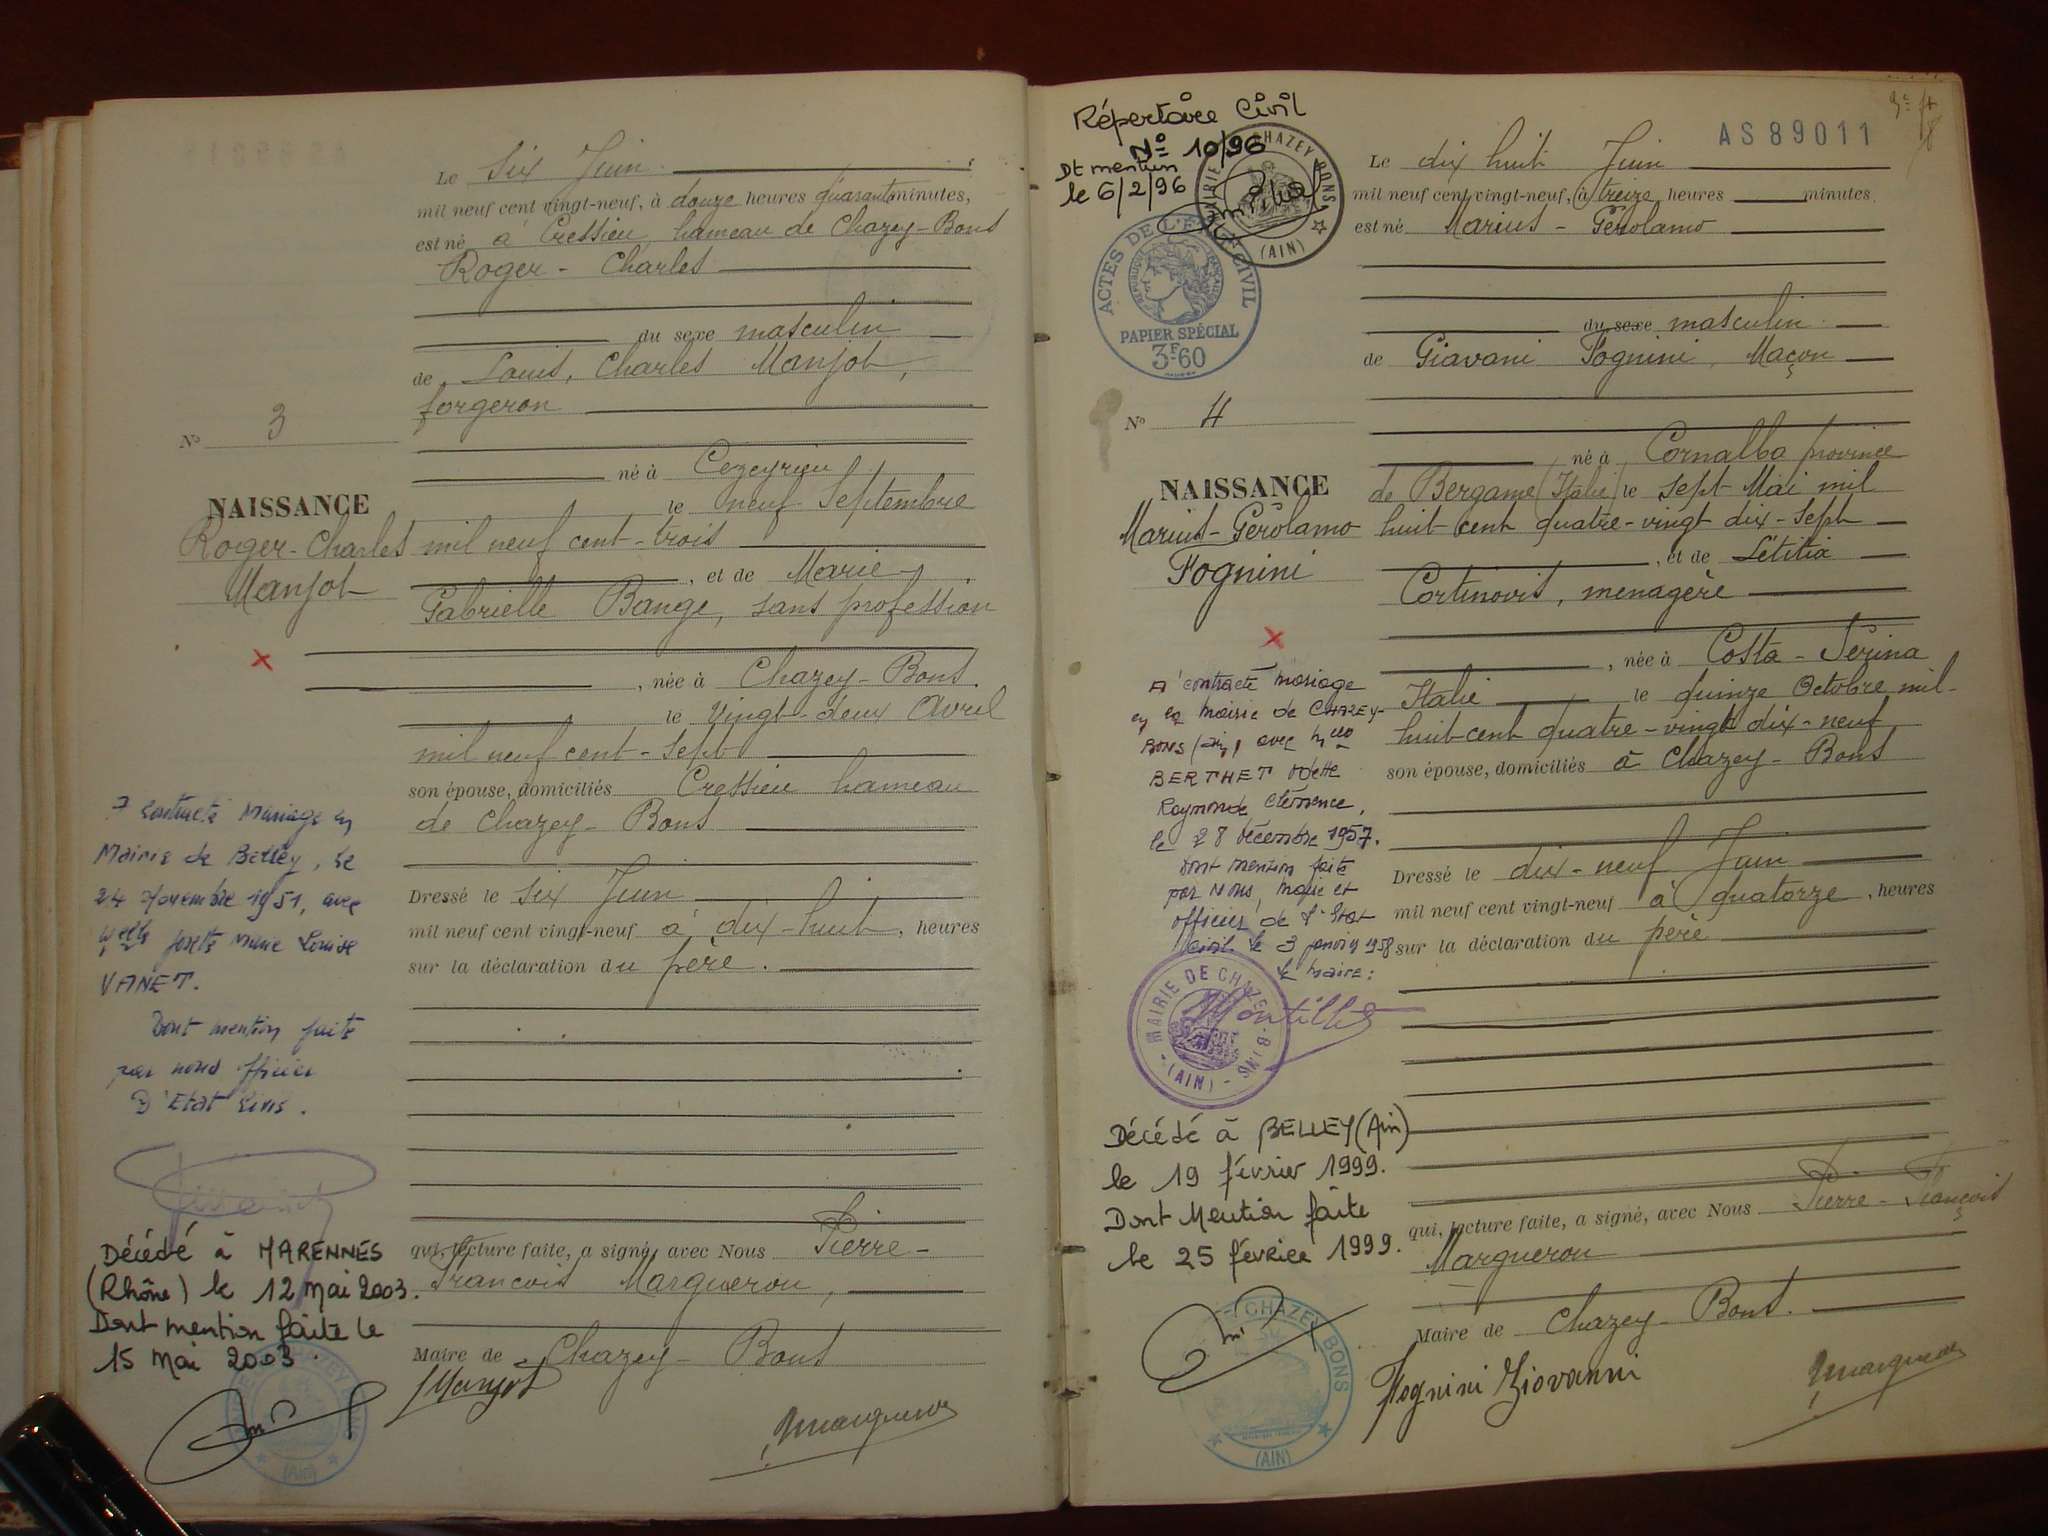 Le six Juin
mil neuf cent vingt-neuf, à douze heures quarante minutes,
est né à Cressieu hameau de Chazey-Bons
Roger - Charles
du sexe masculin
de Louis, Charles Manjot,
forgeron
N° 3
né à Cezeyrieu
NAISSANCE
le neuf Septembre
Roger-Charles
mil neuf cent-trois
Manjot
, et de Marie-
Gabrielle Bange, sans profession
, née à Chazey-Bons
le vingt-deux Avril
mil neuf cent-sept
son épouse, domiciliés Cressieu hameau
de Chazey-Bons
Dressé le six Juin
mil neuf cent vingt-neuf à dix-huit, heures
sur la déclaration du père.
A contracté Mariage en
Mairie de Belley, le
24 Novembre 1951, avec
Melle Josette Marie Louise
VANET.
Dont mention faite
par nous officier
D'Etat Civil.
Décédé à MARENNES
(Rhône) le 12 mai 2003.
Dont mention faite le
15 mai 2003.
qui, lecture faite, a signé, avec Nous Pierre-
Francois Marguerou,
Maire de Chazey-Bons
Manjot
Marguerou
Répertoire Civil
N° 10/96
Dt mention
le 6/2/96
MAIRIE CHAZEY BONS
(AIN)
ACTES DE L'ETAT CIVIL
REPUBLIQUE FRANÇAISE
PAPIER SPÉCIAL
3F60
AS89011
Le dix huit Juin
mil neuf cent vingt-neuf, à treize heures minutes,
est né Marius - Gérolamo
du sexe masculin
de Giavani Fognini, Maçon
N° 4
né à Cornalba province
NAISSANCE
de Bergame (Italie) le sept Mai mil
Marius-Gérolamo
huit cent quatre-vingt dix-sept
Fognini
, et de Létitia
Cortinovis, ménagère
, née à Costa - Serina
Italie le quinze Octobre mil-
huit-cent quatre-vingt dix-neuf
son épouse, domiciliés à Chazey-Bons
Dressé le dix-neuf Juin
mil neuf cent vingt-neuf à quatorze, heures
sur la déclaration du père
A contracté mariage
en la mairie de CHAZEY-
BONS (Ain) avec Melle
BERTHET Odette
Raymonde Clémence,
le 28 décembre 1957.
Dont mention faite
par Nous, maire et
officier de l'Etat
civil le 3 janvier 1958
le Maire:
MAIRIE DE CHAZEY-BONS
(AIN)
Décédé à BELLEY (Ain)
le 19 février 1999.
Dont Mention faite
le 25 février 1999.
qui, lecture faite, a signé, avec Nous Pierre-François
Marguerou
Maire de Chazey-Bons.
CHAZEY BONS
(AIN)
Fognini Giovanni
Marguerou